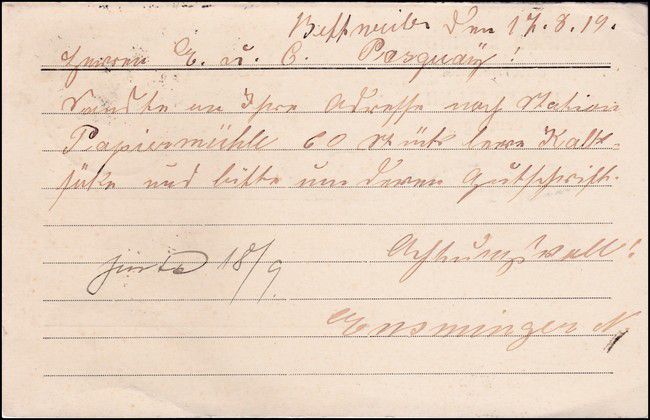 Bettweiler den 17.8.19.
Herren E. u. C. Pasquay!
Sandte an Ihre Adresse nach Station
Papiermühle 60 Stück leere Kalk-
säke und bitte um deren Gutschrift.
Achtungsvoll!
18/9
Ensminger N